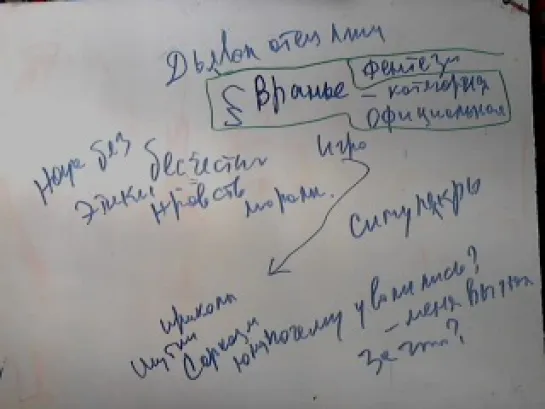 Дьявол отец лжи
Фентези
§ Вранье - категория
Официальная
Наука без бесчестия
Этики, нравств морали.
игра
Симулякры
приколы
шутки
Сарказм
юм Почему уволились?
- меня выгнали
За что?